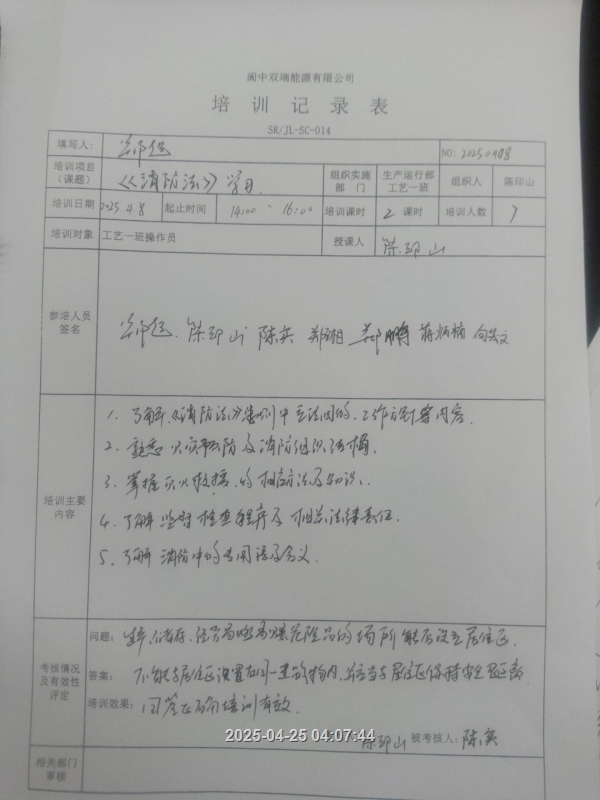 阆中双瑞能源有限公司
培 训 记 录 表
SR/JL-SC-014
填写人： NO: 20250408
培训项目（课题） 《消防法》学习 组织实施部门 生产运行部工艺一班 组织人 陈印山
培训日期 2025.4.8 起止时间 14:00 - 16:00 培训课时 2 课时 培训人数 7
培训对象 工艺一班操作员 授课人 陈印山
参培人员签名 陈印山 陈英 郑湘 鹏
培训主要内容
1. 了解《消防法》总则中立法目的、工作方针等内容.
2. 熟悉火灾预防及消防组织结构.
3. 掌握灭火救援的相应方法及知识.
4. 了解监督检查程序及相关法律责任.
5. 了解消防中的专用语及含义.
考核情况及有效性评定
问题： 生产、储存、经营易燃易爆危险品的场所能否设立居住区.
答案： 不能与居住区设置在同一建筑物内,应当与居住区保持安全距离
培训效果： 回答正确培训有效.
陈印山 被考核人： 陈英
相关部门审核
2025-04-25 04:07:44